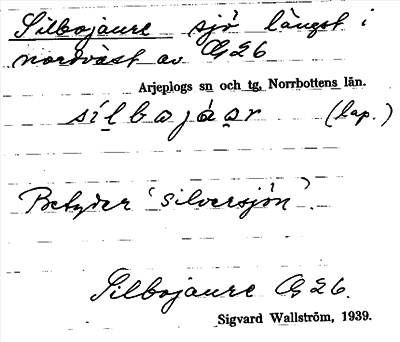 Silbojaure sjö längst i
nordväst av G26
Arjeplogs sn och tg, Norrbottens län.
sílbojáạr (lap.)
Betyder 'silversjön'.
Silbojaure G26.
Sigvard Wallström, 1939.